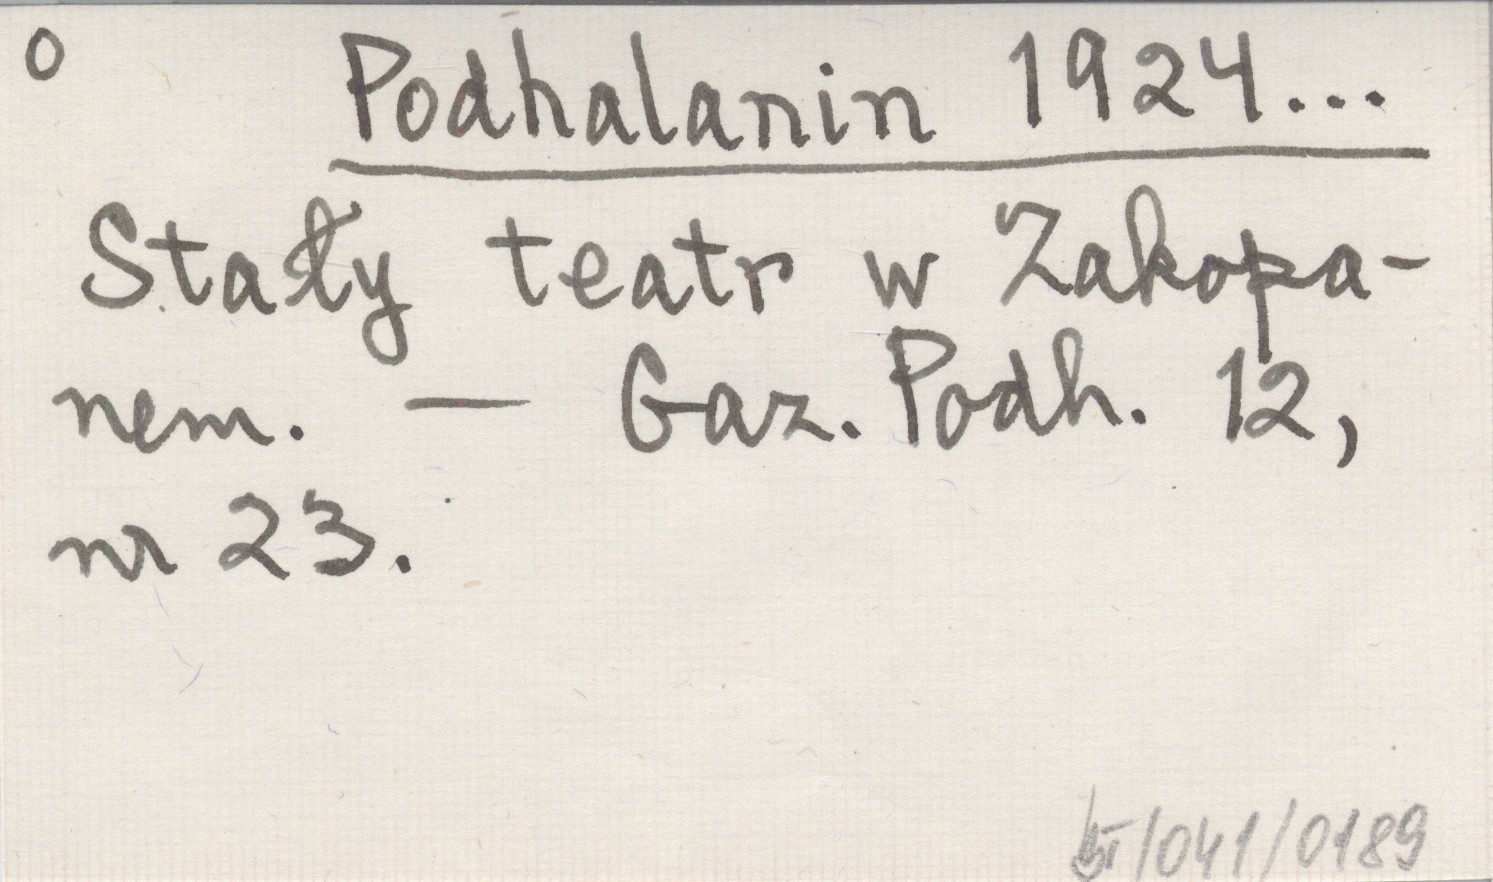 0
Podhalanin 1924...
Stały teatr w Zakopa-
nem. — Gaz. Podh. 12,
nr 23.
/041/0189